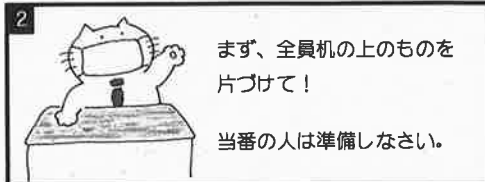 2
まず、全員机の上のものを
片づけて！
当番の人は準備しなさい。